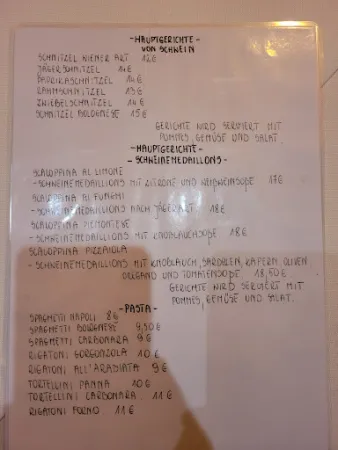 -HAUPTGERICHTE-
VON SCHWEIN
SCHNITZEL WIENER ART 12€
JÄGERSCHNITZEL 14€
PAPRIKASCHNITZEL 14€
RAHMSCHNITZEL 13€
ZWIEBELSCHNITZEL 14€
SCHNITZEL BOLOGNESE 15€
GERICHTE WIRD SERVIERT MIT
POMMES, GEMÜSE UND SALAT
-HAUPTGERICHTE-
-SCHWEINEMEDAILLONS-
SCALOPPINA AL LIMONE
-SCHWEINEMEDAILLONS MIT ZITRONE UND WEIßWEINSOßE 17€
SCALOPPINA AI FUNGHI
-SCHWEINEMEDAILLONS NACH JÄGERART 18€
SCALOPPINA PIEMONTESE
-SCHWEINEMEDAILLONS MIT KNOBLAUCHSOßE 18€
SCALOPPINA PIZZAIOLA
-SCHWEINEMEDAILLONS MIT KNOBLAUCH, SARDELLEN, KAPERN, OLIVEN
OREGANO UND TOMATENSOßE 18,50€
GERICHTE WIRD SERVIERT MIT
POMMES, GEMÜSE UND SALAT.
-PASTA-
SPAGHETTI NAPOLI 8€
SPAGHETTI BOLOGNESE 9,50€
SPAGHETTI CARBONARA 9€
RIGATONI GORGONZOLA 10€
RIGATONI ALL'ARABIATA 9€
TORTELLINI PANNA 10€
TORTELLINI CARBONARA 11€
RIGATONI FORNO 11€